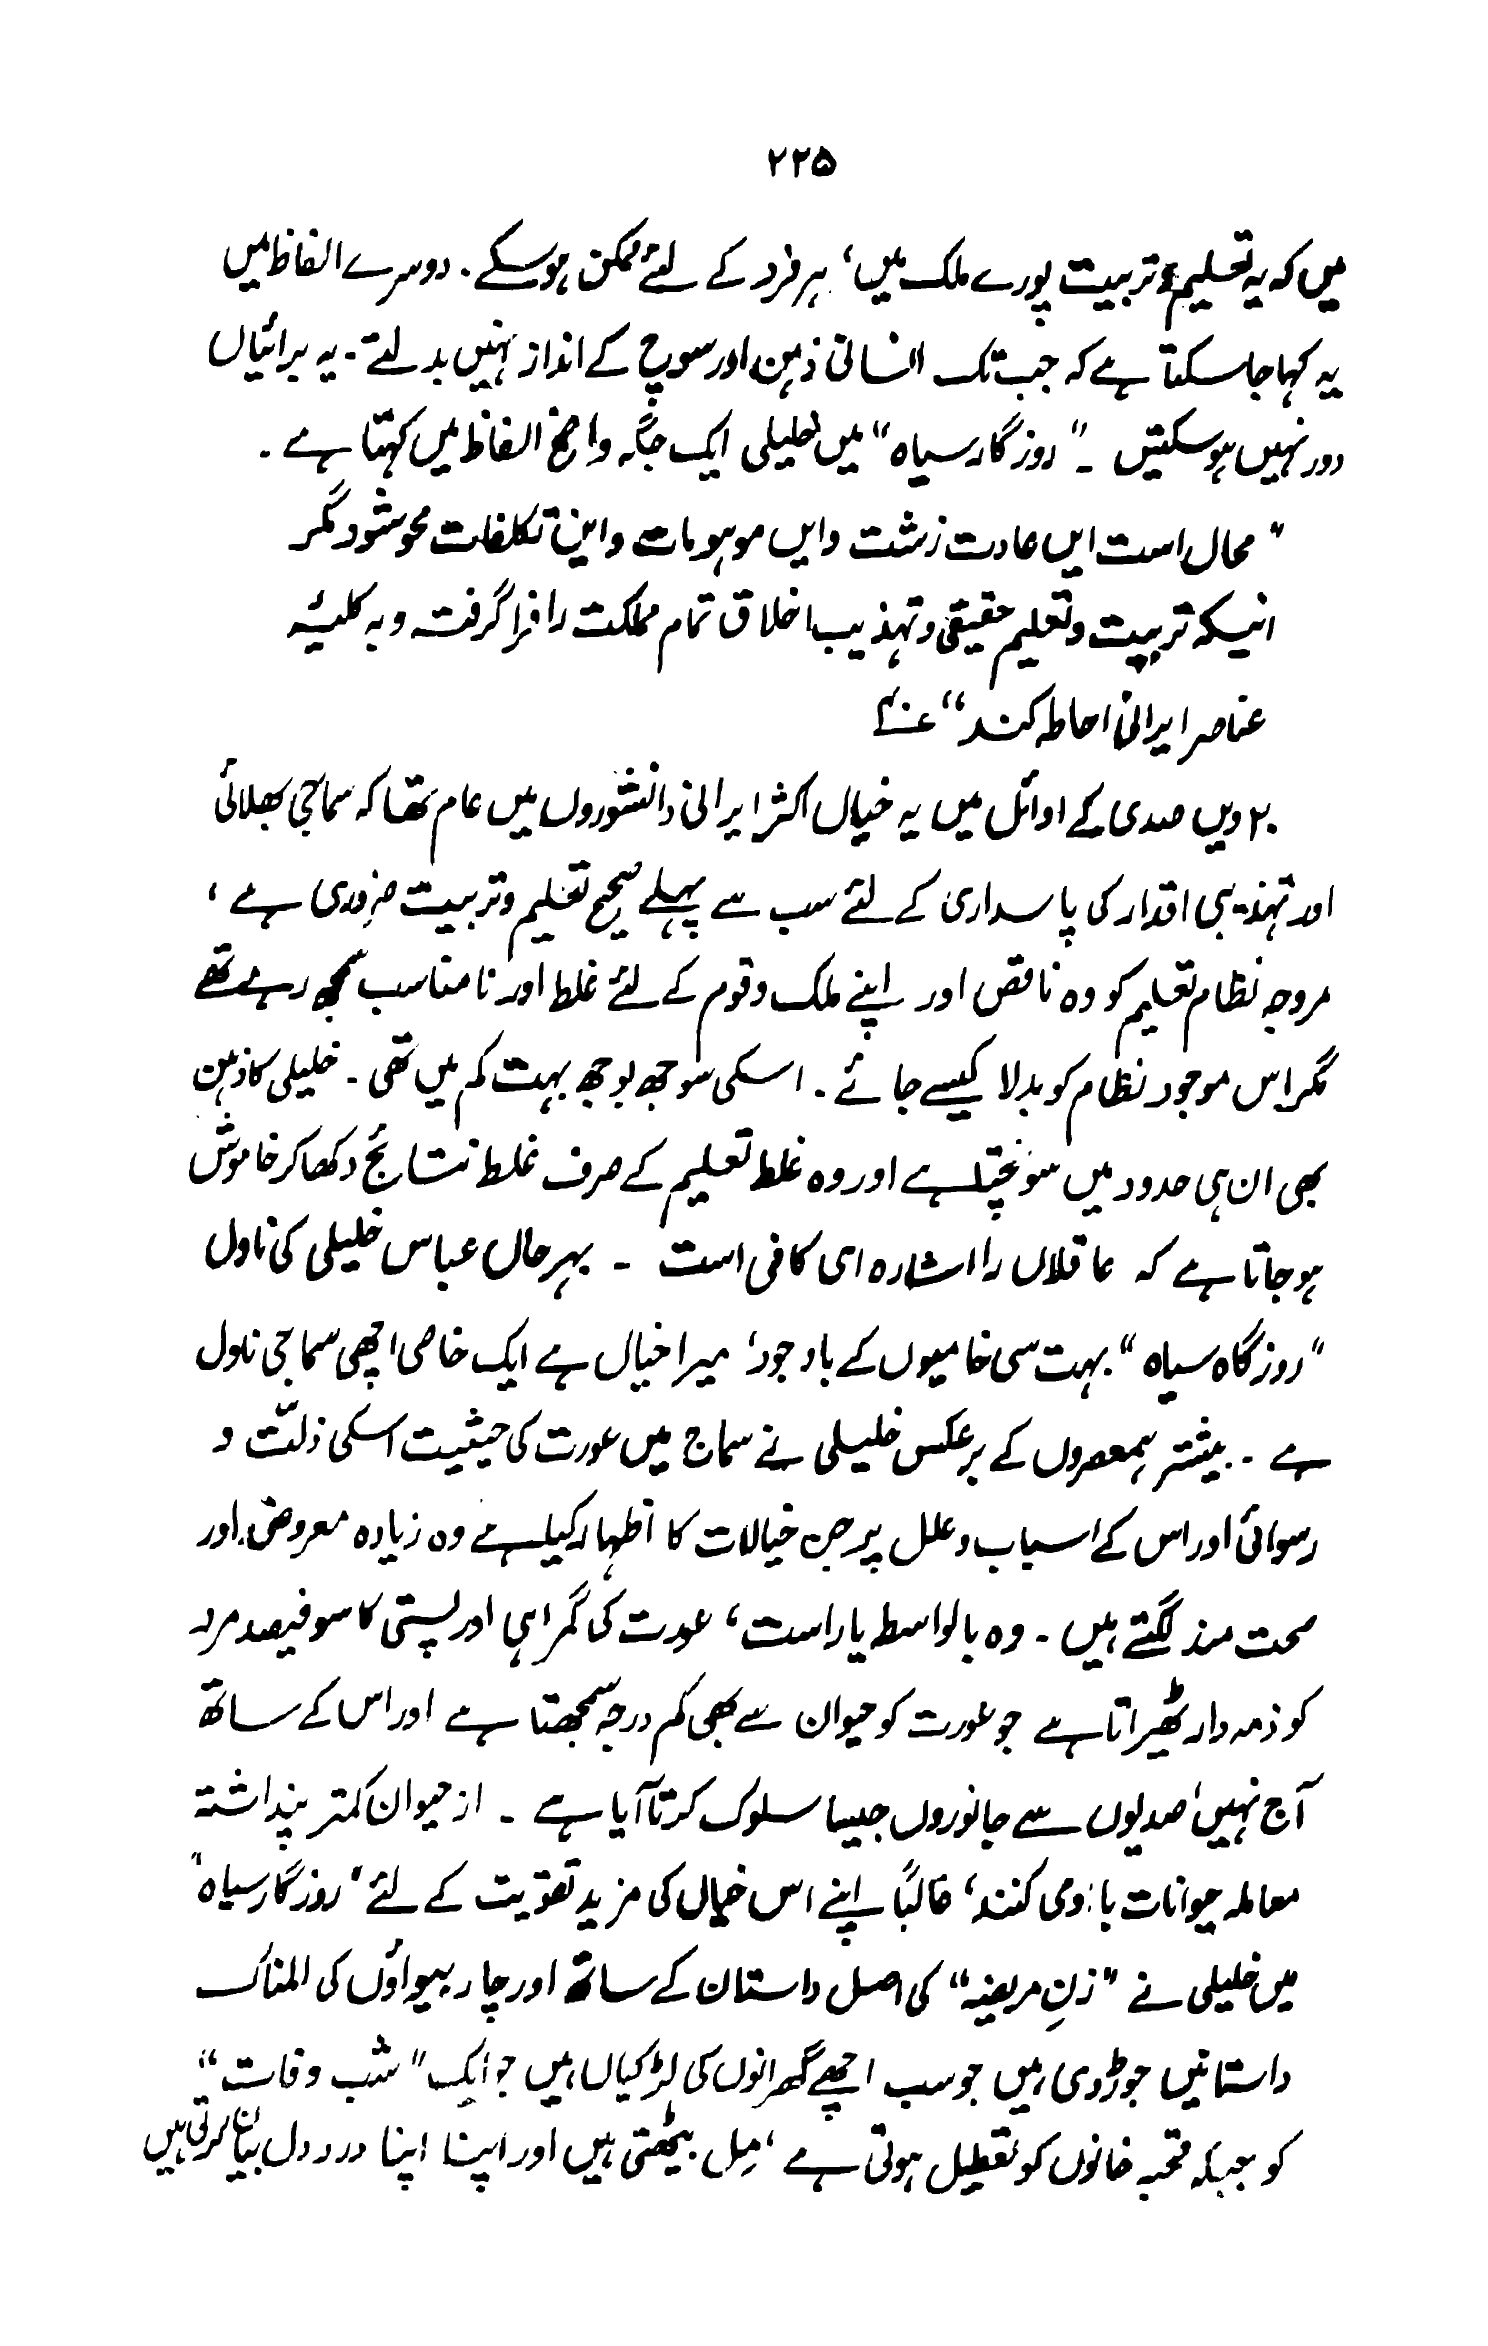 ۲۲۵
میں کہ یہ تعلیم و تربیت پورے ملک میں، ہر فرد کے لئے ممکن ہو سکے۔ دوسرے الفاظ میں
یہ کہا جا سکتا ہے کہ جب تک انسانی ذہن اور سوچ کے انداز نہیں بدلتے۔ یہ برائیاں
دور نہیں ہو سکتیں ۔ "روزگار سیاہ" میں خلیلی ایک جگہ واضح الفاظ میں کہتا ہے ۔
" محال است ایں عادت زشت و ایں موہومات و این تکلفات محو شود مگر
اینکہ تربیت و تعلیم حقیقی و تہذیب اخلاق تمام مملکت را فرا گرفتہ و بہ کلیہٴ
عناصر ایرانی احاطہ کند"
۲۰ ویں صدی کے اوائل میں یہ خیال اکثر ایرانی دانشوروں میں عام تھا کہ سماجی بھلائی
اور تہذیبی اقدار کی پاسداری کے لئے سب سے پہلے صحیح تعلیم و تربیت ضروری ہے،
مروجہ نظام تعلیم کو وہ ناقص اور اپنے ملک و قوم کے لئے غلط اور نامناسب سمجھ رہے تھے
مگر اس موجود نظام کو بدلا کیسے جائے ۔ اسکی سوجھ بوجھ بہت کم میں تھی ۔ خلیلی کا ذہن
بھی ان ہی حدود میں سونچتا ہے اور وہ غلط تعلیم کے صرف غلط نتائج دکھا کر خاموش
ہو جاتا ہے کہ عاقلاں را اشارہ ای کافی است ۔ بہر حال عباس خلیلی کی ناول
"روزگاہ سیاہ" بہت سی خامیوں کے باوجود، میرا خیال ہے ایک خاصی اچھی سماجی ناول
ہے ۔ بیشتر ہمعصروں کے برعکس خلیلی نے سماج میں عورت کی حیثیت اسکی ذلّت و
رسوائی اور اس کے اسباب و علل پر جن خیالات کا اظہار کیا ہے وہ زیادہ معروضی اور
صحت مند لگتے ہیں ۔ وہ بالواسطہ یا راست، عورت کی گمراہی اور پستی کا سو فیصد مرد
کو ذمہ دار ٹھیراتا ہے جو عورت کو حیوان سے بھی کم درجہ سمجھتا ہے اور اس کے ساتھ
آج نہیں، صدیوں سے جانوروں جیسا سلوک کرتا آیا ہے ۔ از حیوان کمتر پنداشتہ
معاملہ حیوانات با او می کنند، غالباً اپنے اس خیال کی مزید تقویت کے لئے "روزگار سیاہ"
میں خلیلی نے "زنِ مریضہ" کی اصل داستان کے ساتھ اور چار بیواؤں کی المناک
داستانیں جوڑ دی ہیں جو سب اچھے گھرانوں کی لڑکیاں ہیں جو ایک "شب وفات"
کو جبکہ قحبہ خانوں کو تعطیل ہوتی ہے، مِل بیٹھتی ہیں اور اپنا اپنا درد دل بیان کرتی ہیں